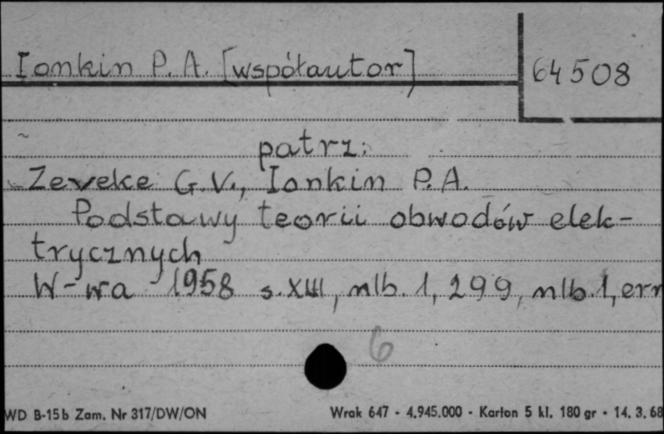 Ionkin P. A. [współautor]
64508
patrz:
Zeveke G. V., Ionkin P. A.
Podstawy teorii obwodów elek-
trycznych
W-wa 1958 s. XIII, nlb. 1, 299, nlb. 1, err
6
WD B-15b Zam. Nr 317/DW/ON Wrak 647 - 4.945.000 - Karton 5 kl. 180 gr - 14. 3. 68